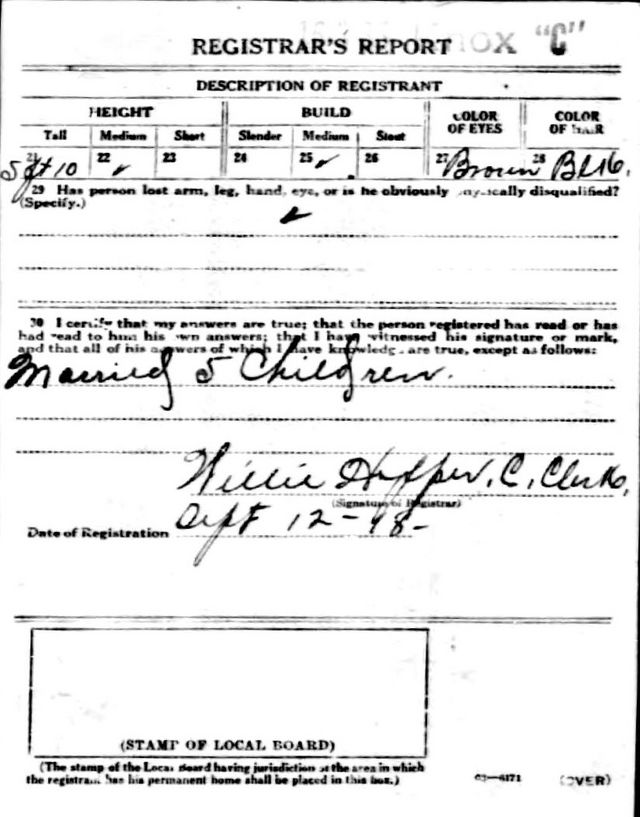 REGISTRAR'S REPORT "C"
DESCRIPTION OF REGISTRANT
HEIGHT BUILD COLOR OF EYES COLOR OF HAIR
Tall Medium Short Slender Medium Stout
21 5 ft 10 22 ✓ 23 24 25 ✓ 26 27 Brown 28 Blk
29 Has person lost arm, leg, hand, eye, or is he obviously physically disqualified?
(Specify.)
30 I certify that my answers are true; that the person registered has read or has
had read to him his own answers; that I have witnessed his signature or mark,
and that all of his answers of which I have knowledge are true, except as follows:
Married 5 Children.
Willie C. Clerk
(Signature of Registrar)
Date of Registration Sept 12-18-
(STAMP OF LOCAL BOARD)
(The stamp of the Local Board having jurisdiction of the area in which
the registrant has his permanent home shall be placed in this box.)
03—6171 (OVER)